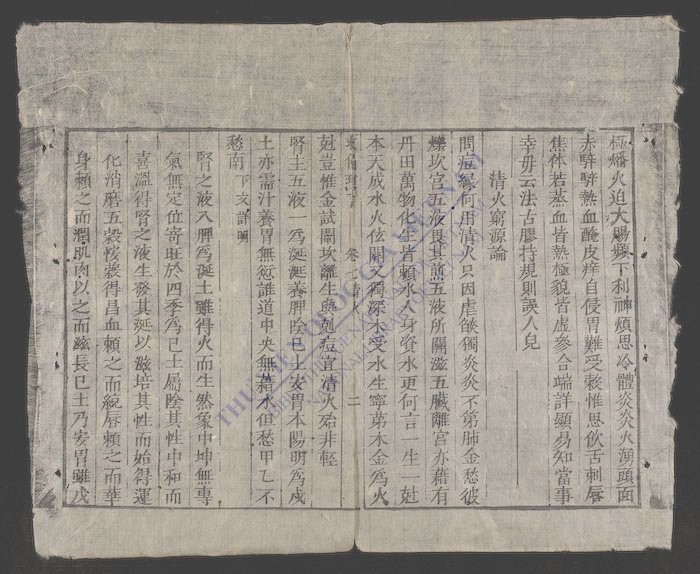 極燔火迫大腸頻下利神煩思冷體炎炎火溯頭面
赤騂騂熱血醃皮痒自侵胃難受穀惟思飲舌刺唇
焦体若蒸血皆熱極貌皆虛參合端詳顯易知當事
幸毋云法古膠持規則誤人兒
清火窮源論
問痘緣何用清火只因虐燄獨炎炎不第肺金愁彼
爍坎宮五液畏其煎五液所關滋五臟離宮亦藉有
丹田萬物化生者賴水人身資水更何言一生一尅
本天成水火弦關又獨深木受水生寧第木金爲火
卷七清火 二
尅豈惟金試閱坎離生與剋痘宜清火殆非輕
腎主五液一爲涎涎養脾陰巳土安胃本陽明爲戍
土亦需汁養胃無愆誰道中央無藉水但愁甲乙不
愁南下文詳明
腎之液入脾爲涎土雖得火而生然象中坤無專
氣無定位寄旺於四季爲巳土屬陰其性中和而
喜溫得腎之液生發其涎以滋培其性而始得運
化消磨五穀悠裘得昌血賴之而統唇賴之而華
身賴之而潤肌肉以之而滋長巳土乃安胃雖戊